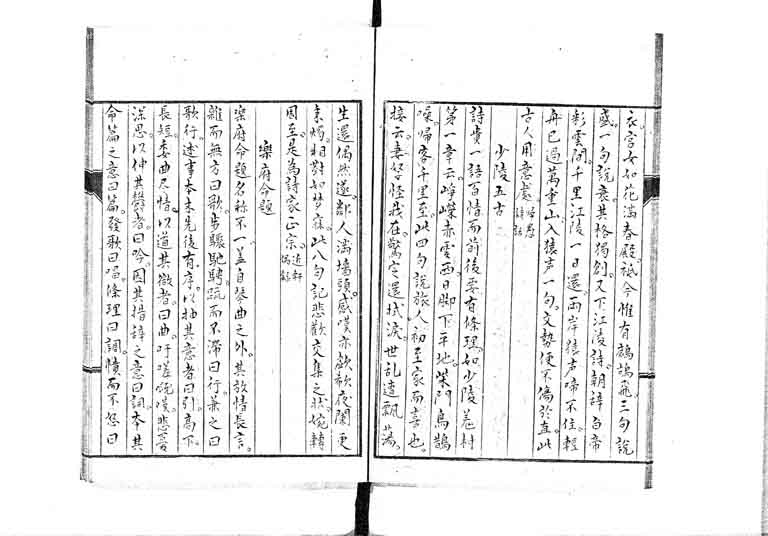 衣宫女如花滿春殿。祗今惟有鷓鴣飛。三句說
盛。一句說衰。其格獨創。又下江陵詩。朝辭白帝
彩雲間。千里江陵一日還。兩岸猿声啼不住。輕
舟已過萬重山。入猿声一句。文勢便不傷於直。此
古人用意處。
少陵五古
詩貴一語百情。而前後要有條理。如少陵羗村
第一章云。崢嶸赤雲西。日脚下平地。柴門鳥鵲
噪。歸客千里至。此四句說旅人初至家而喜也。
接云。妻孥怪我在。驚定還拭淚。世乱遭飄蕩。
生還偶然遂。鄰人滿墻頭。感嘆亦歔欷。夜闌更
秉燭。相對如夢寐。此八句記悲歡交集之狀。婉轉
周至。是為詩家正宗。
樂府命題
樂府命題名称不一。盖自琴曲之外。其放情長言。
雜而無方曰歌。步驟馳騁。疏而不滯曰行。兼之曰
歌行。述事本末先後有序。以抽其意者曰引。高下
長短。委曲尽情。以道其微者曰曲。吁嗟慨嘆。悲憂
深思。以伸其鬱者曰吟。因其措辞之意曰詞。本其
命篇之意曰篇。發歌曰唱。條理曰調。憤而不怒曰